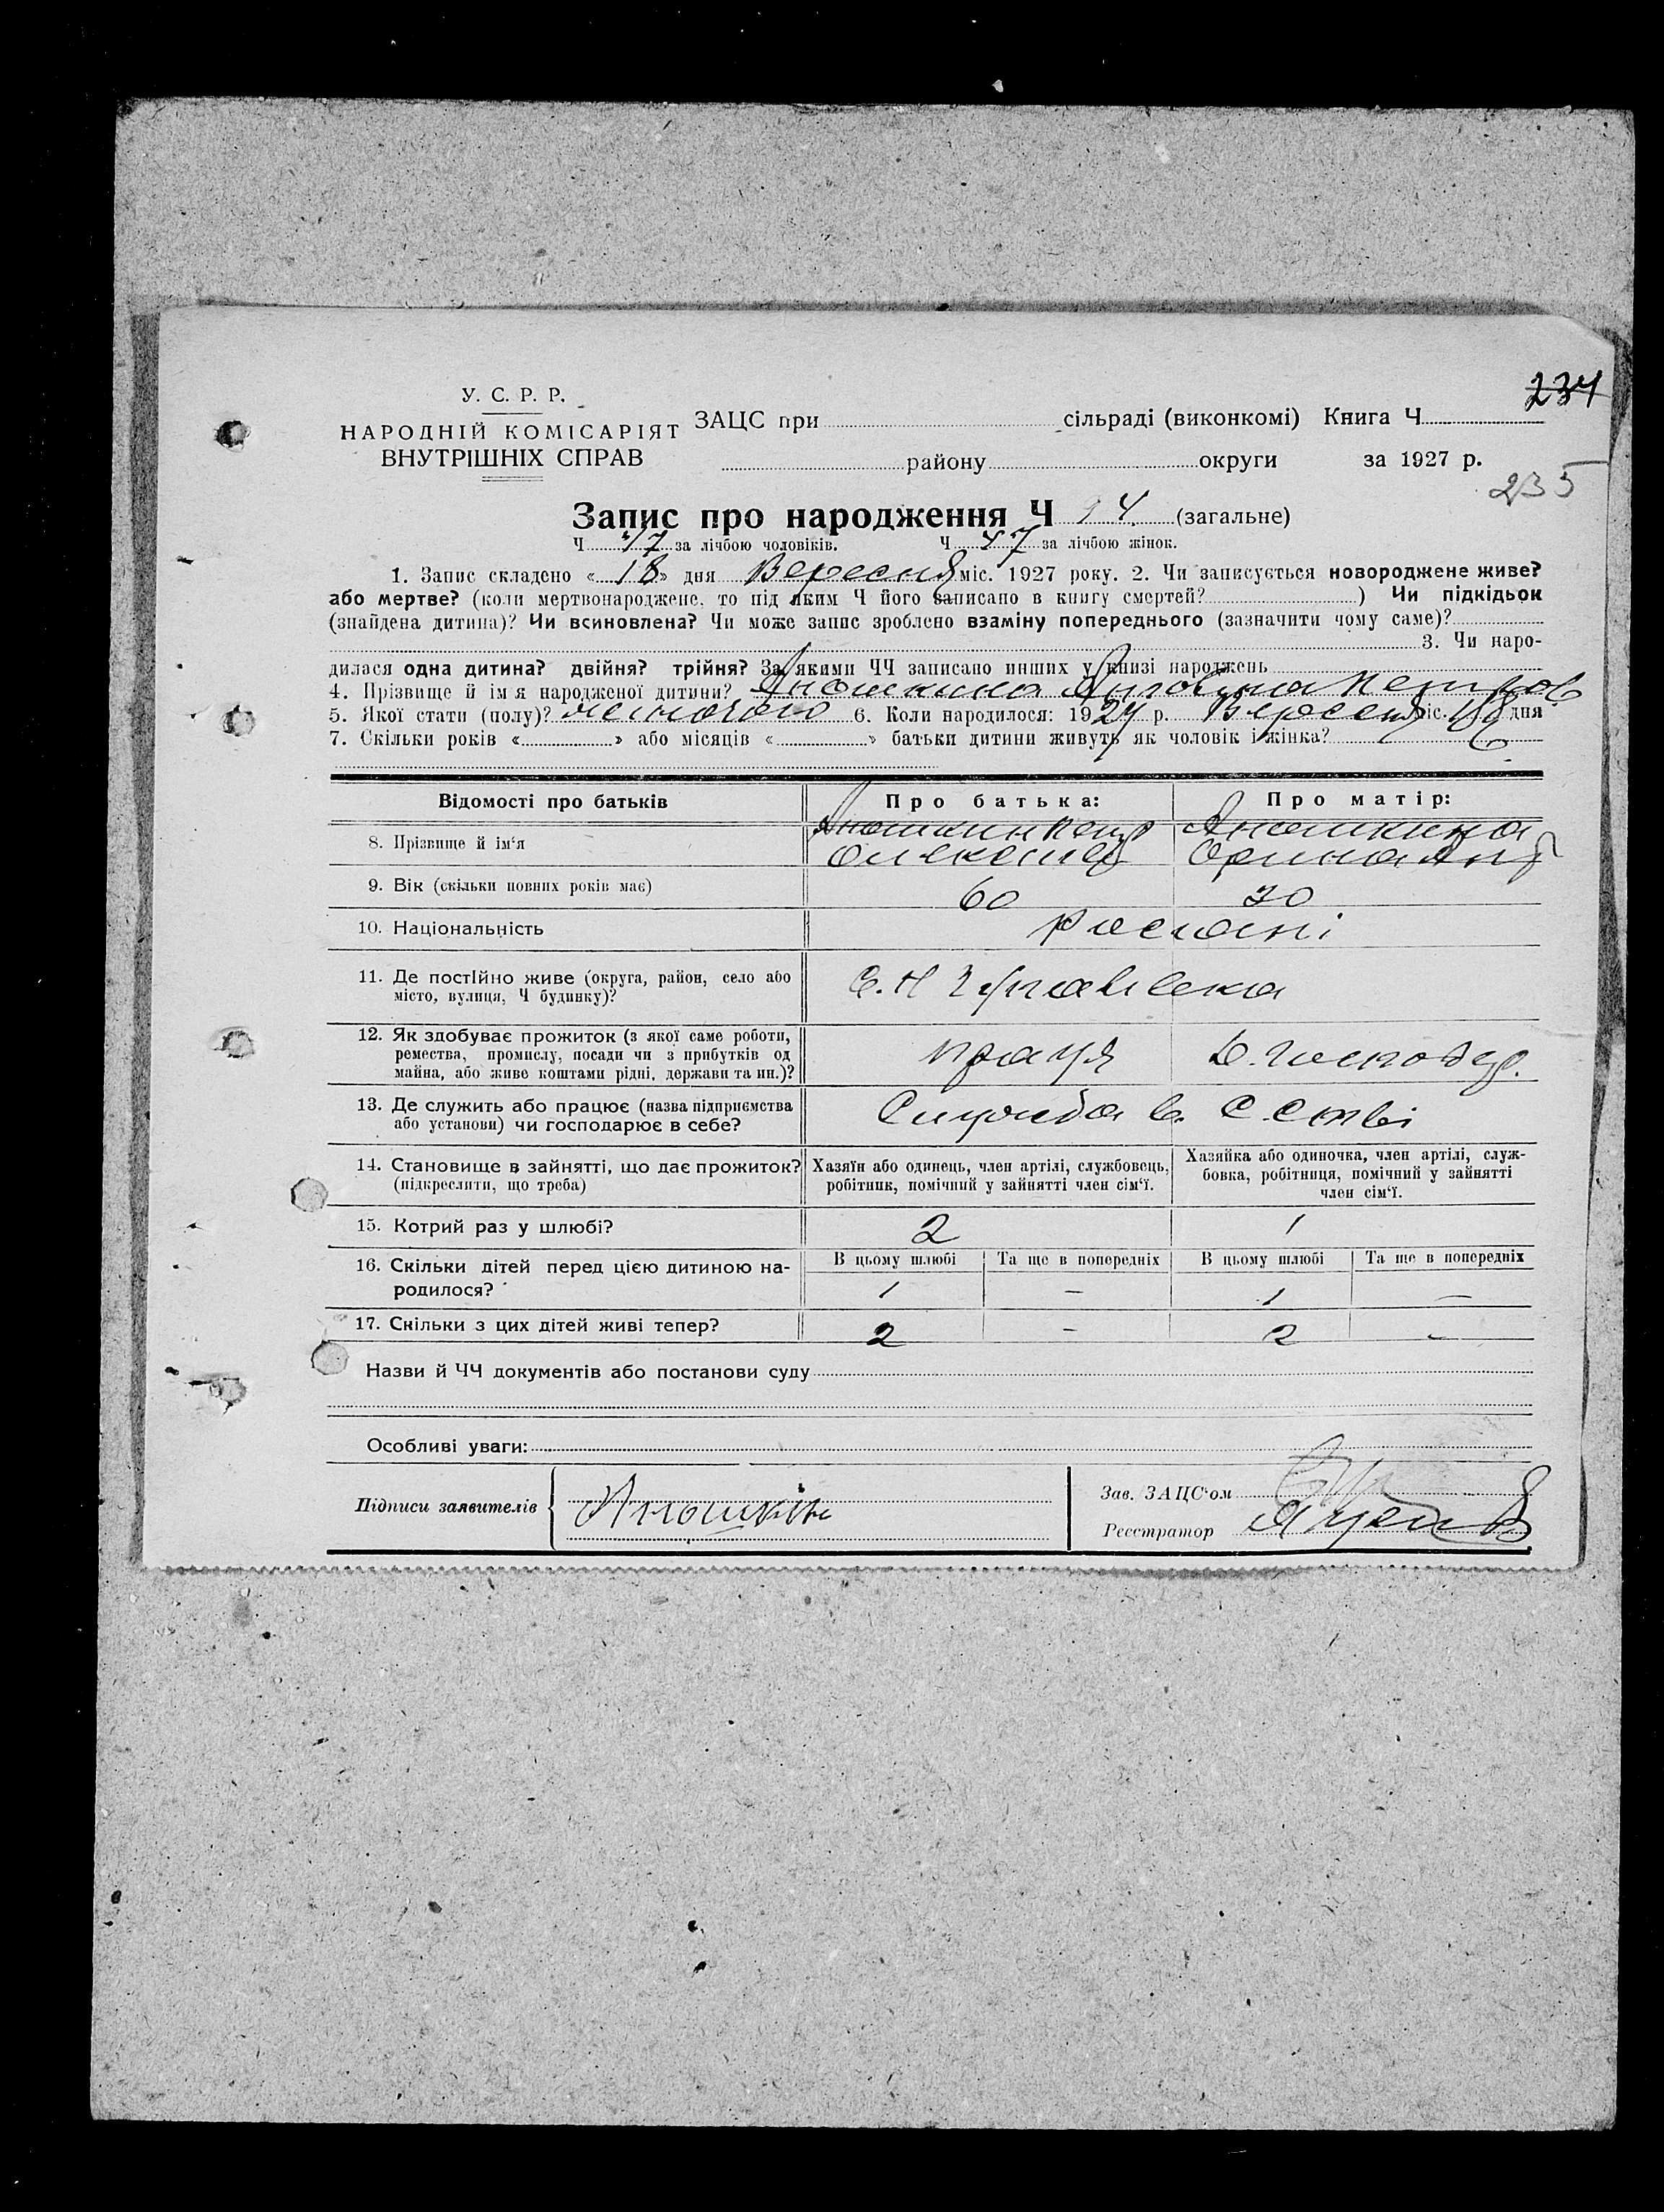 234
У. С. Р. Р.
НАРОДНІЙ КОМІСАРІЯТ
ВНУТРІШНІХ СПРАВ
ЗАЦС при сільраді (виконкомі) Книга Ч
району округи за 1927 р.
235
Запис про народження Ч 94 (загальне)
Ч 47 за лічбою чоловіків. Ч 47 за лічбою жінок.
1. Запис складено «18» дня Вересня міс. 1927 року. 2. Чи записується новороджене живе?
або мертве? (коли мертвонароджене, то під яким Ч його записано в книгу смертей? ) Чи підкідьок
(знайдена дитина)? Чи всиновлена? Чи може запис зроблено взаміну попереднього (зазначити чому саме)?
3. Чи наро-
дилася одна дитина? двійня? трійня? За якими ЧЧ записано инших у книзі народжень
4. Прізвище й ім'я народженої дитини? Аношкина Петров
5. Якої стати (полу)? жіночого 6. Коли народилося: 1927 р. Вересня міс. дня
7. Скільки років « » або місяців « » батьки дитини живуть як чоловік і жінка?
Відомості про батьків Про батька: Про матір:
8. Прізвище й ім'я Аношкин Петр Аношкина
Орина
9. Вік (скільки повних років має) 60 30
10. Національність росіяні
11. Де постійно живе (округа, район, село або
місто, вулиця, Ч будинку)?
12. Як здобуває прожиток (з якої саме роботи,
ремества, промислу, посади чи з прибутків од
майна, або живе коштами рідні, держави та ин.)? праця
13. Де служить або працює (назва підприємства
або установи) чи господарює в себе? Служба в
14. Становище в зайнятті, що дає прожиток?
(підкреслити, що треба)
Хазяїн або одинець, член артілі, службовець,
робітник, помічний у зайнятті член сім'ї.
Хазяйка або одиночка, член артілі, служ-
бовка, робітниця, помічний у зайнятті
член сім'ї.
15. Котрий раз у шлюбі? 2 1
16. Скільки дітей перед цією дитиною на-
родилося?
В цьому шлюбі Та ще в попередніх В цьому шлюбі Та ще в попередніх
1 – 1 –
17. Скільки з цих дітей живі тепер? 2 – 2 –
Назви й ЧЧ документів або постанови суду
Особливі уваги:
Підписи заявителів Аношкін
Зав. ЗАЦС'ом
Реєстратор